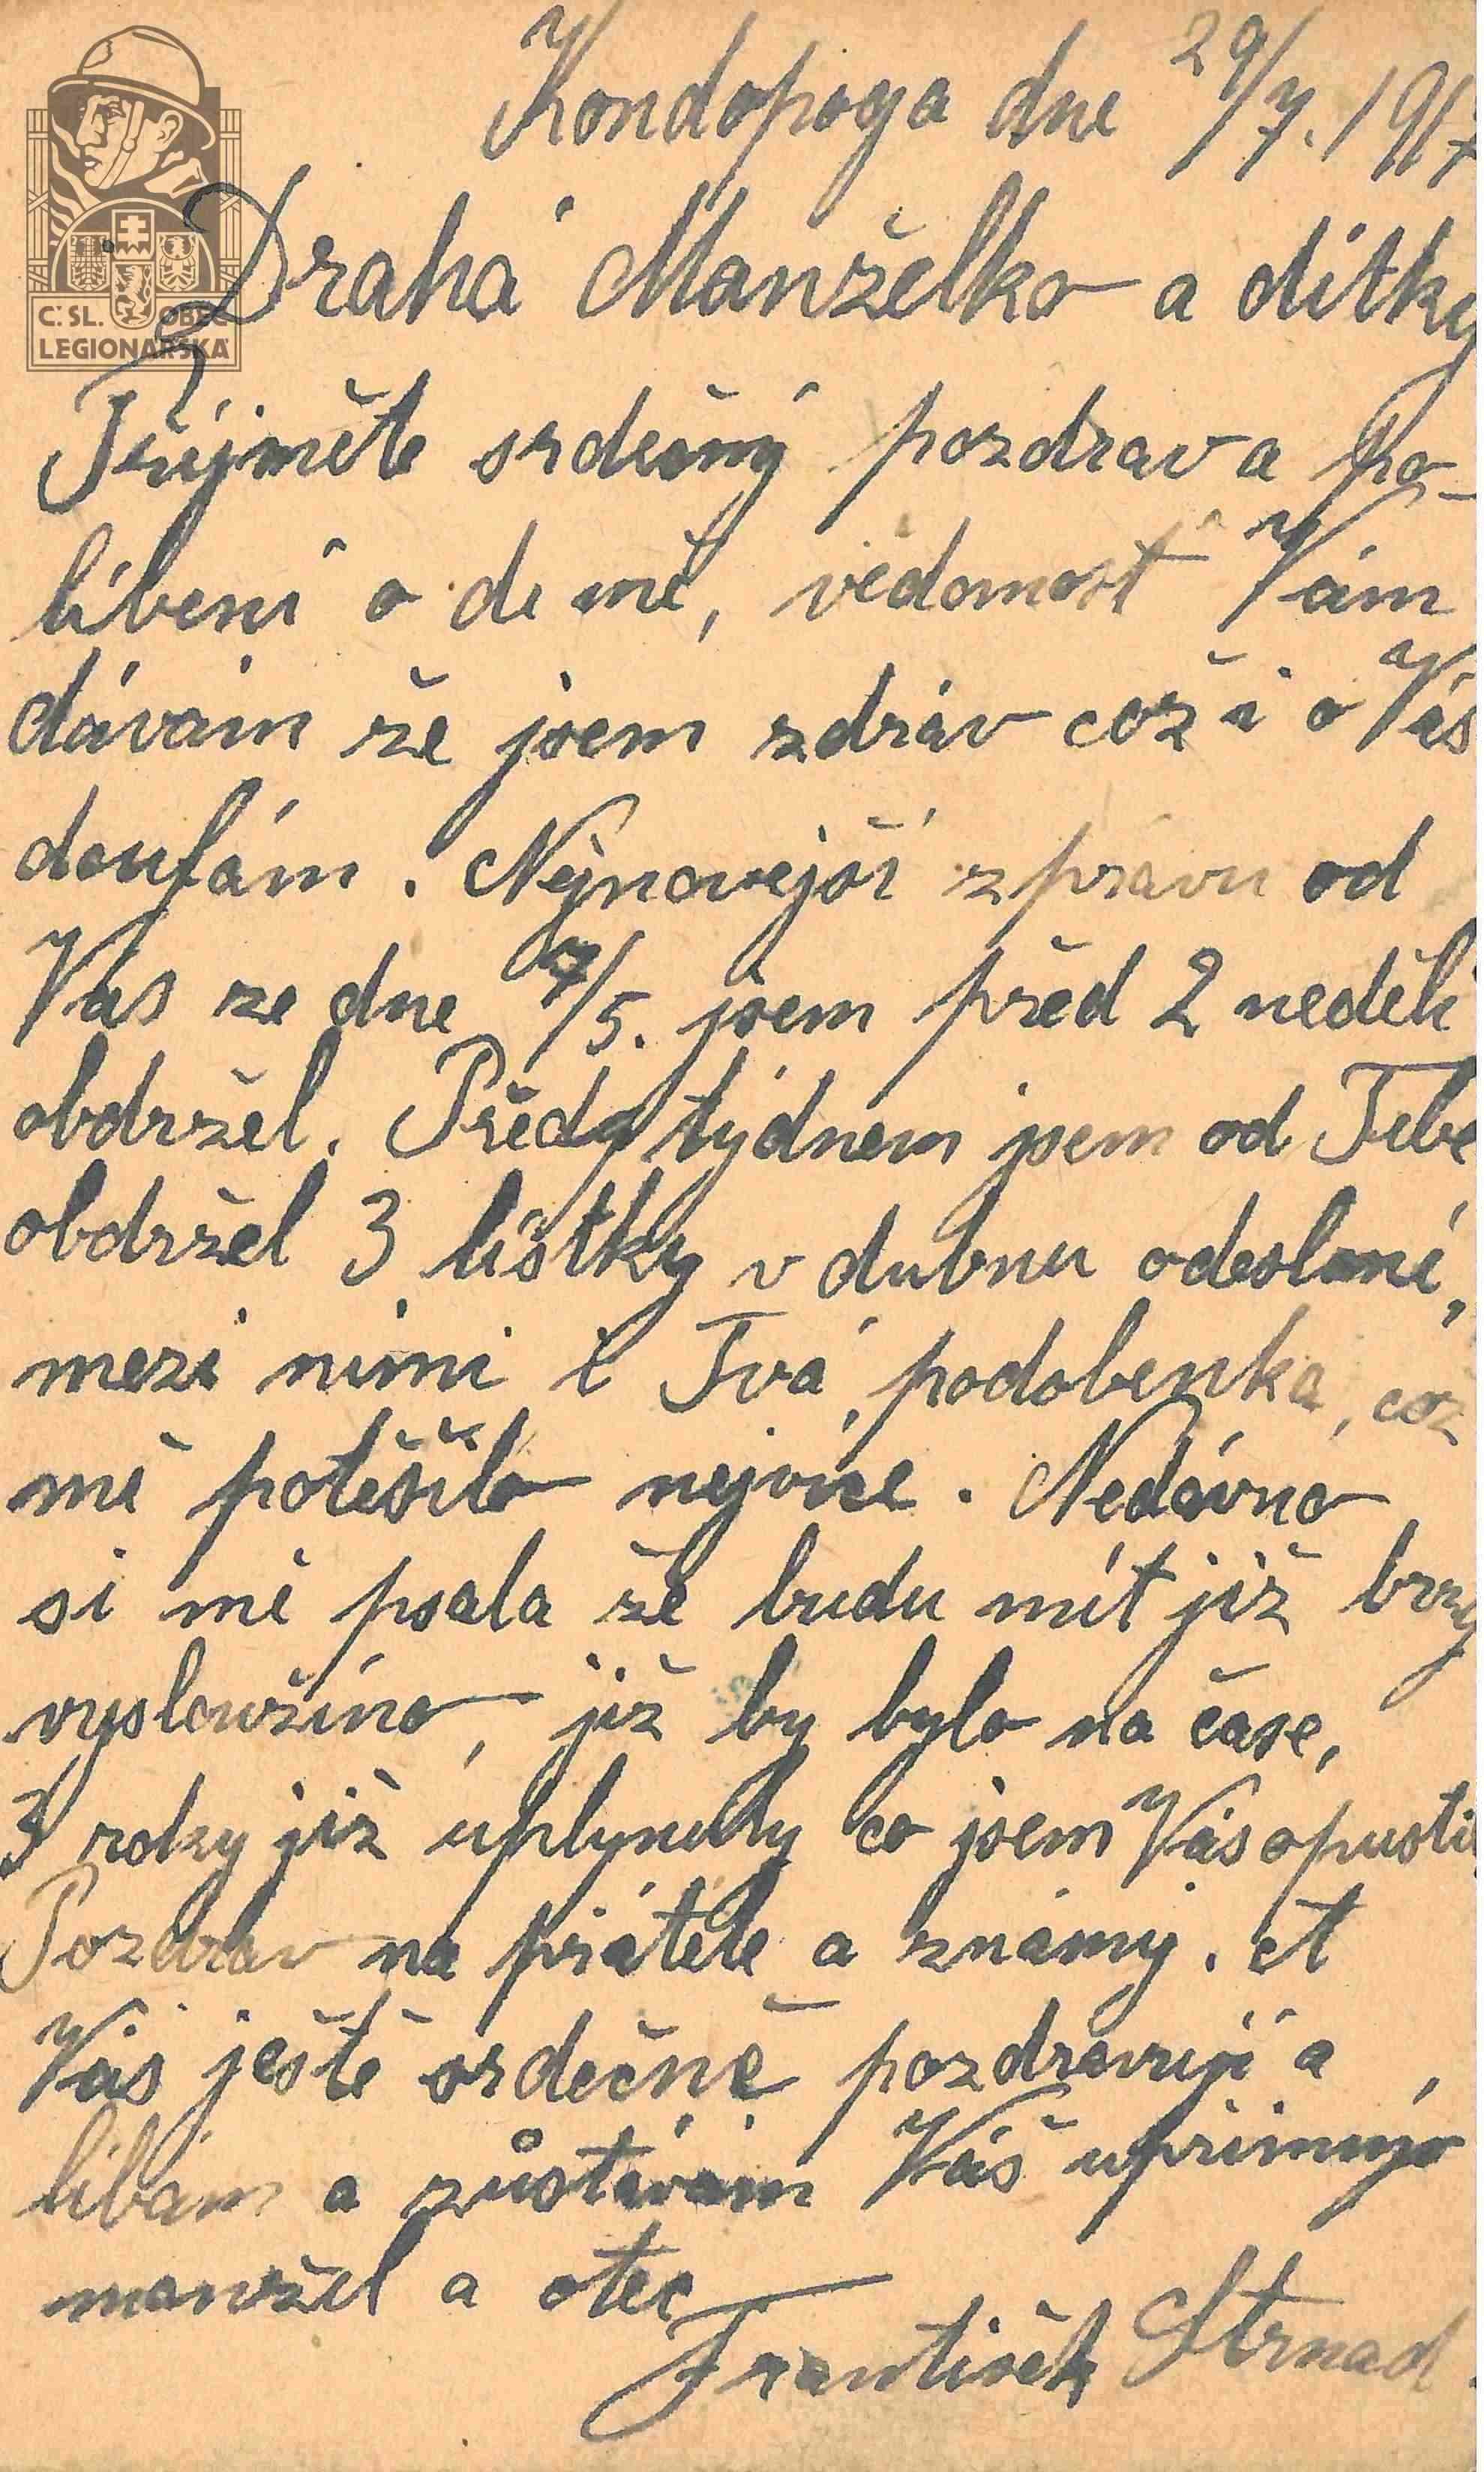 Kondopoga dne 29/7. 1917
Č.SL. OBEC
LEGIONÁŘSKÁ
Drahá Manželko a dítky
Přijměte srdečný pozdrav a po-
líbení o de mě, vědomost Vám
dávám že jsem zdráv což i o Vás
doufám. Nejnovější zprávu od
Vás ze dne 7/5. jsem před 2 neděli
obdržel. Před týdnem jsem od Tebe
obdržel 3 lístky v dubnu odeslané,
mezi nimi i Tvá podobenka, což
mě potěšilo nejvíce. Nedávno
si mě psala že budu mít již brzy
vysloužíno, již by bylo na čase,
3 roky již uplynuly co jsem Vás opustil
Pozdrav na přátele a známý. A
Vás ještě srdečně pozdravuji a
líbám a zůstávám Váš upřímný
manžel a otec
František Strnad.